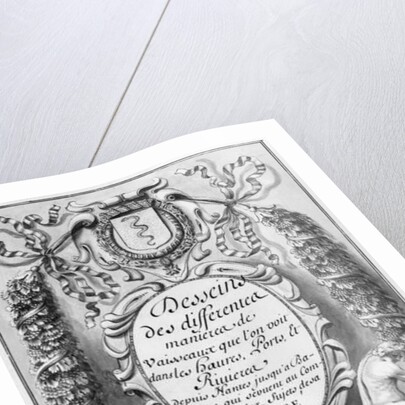 Desseins
des differentes
manieres de
Vaisseaux que l'on voit
dans les haures, Ports, Et
Riuieres
depuis Nantes jusqu'a Ba-
qui servent au Com-
Sujets desa